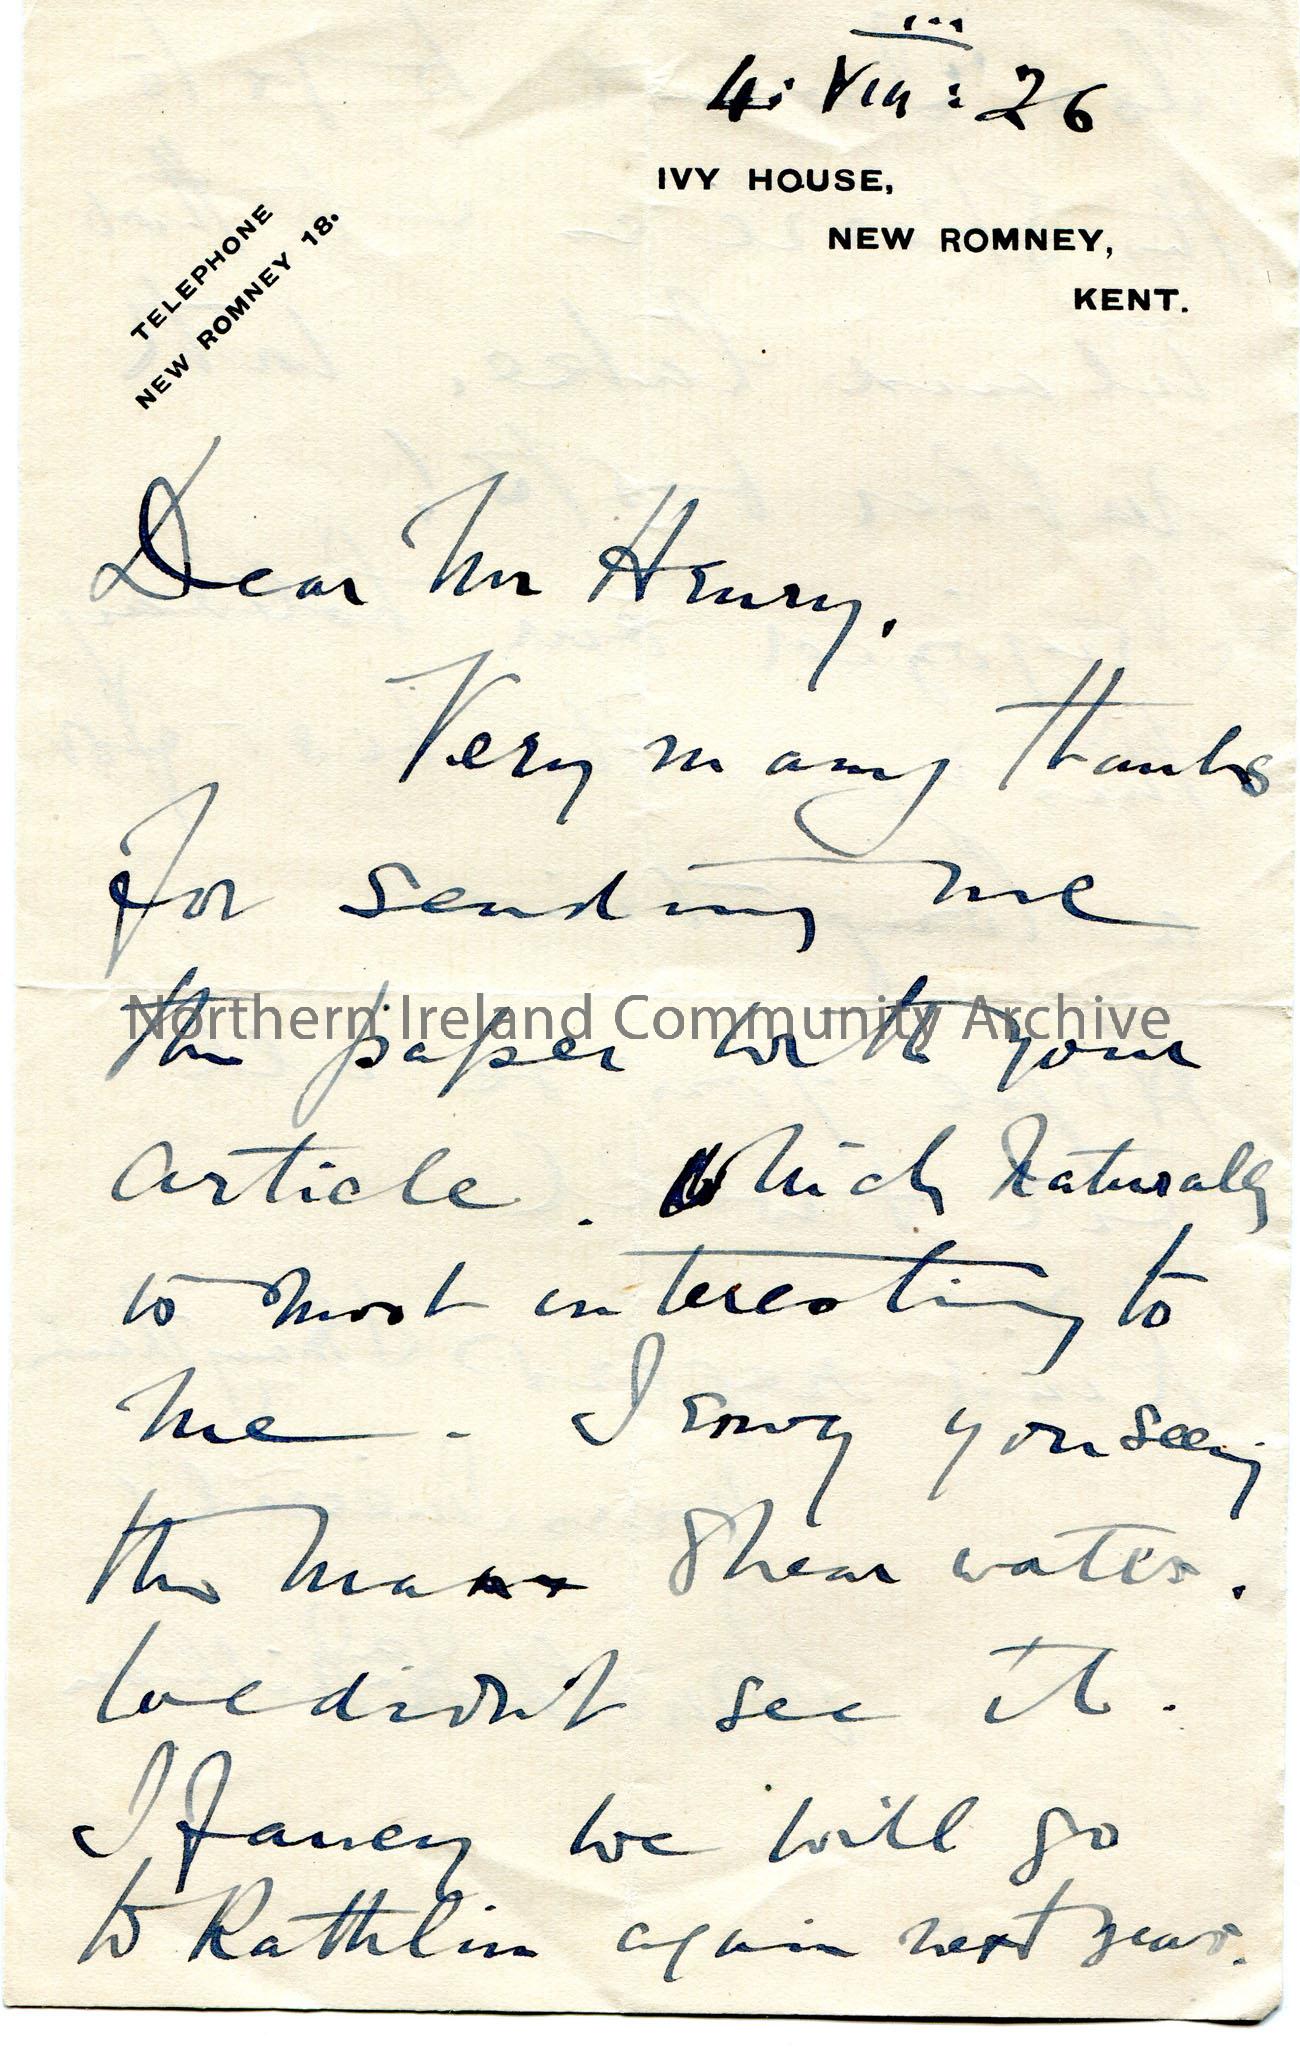 4: VIII: 26
IVY HOUSE,
NEW ROMNEY,
KENT.
TELEPHONE
NEW ROMNEY 18.
Dear Mr Henry.
Very many thanks
for sending me
the paper with your
Northern Ireland Community Archive
article. Which naturally
is most interesting to
me. I envy you seeing
the Manx Shearwater.
We didn't see it.
I fancy we will go
to Rathlin again next year.